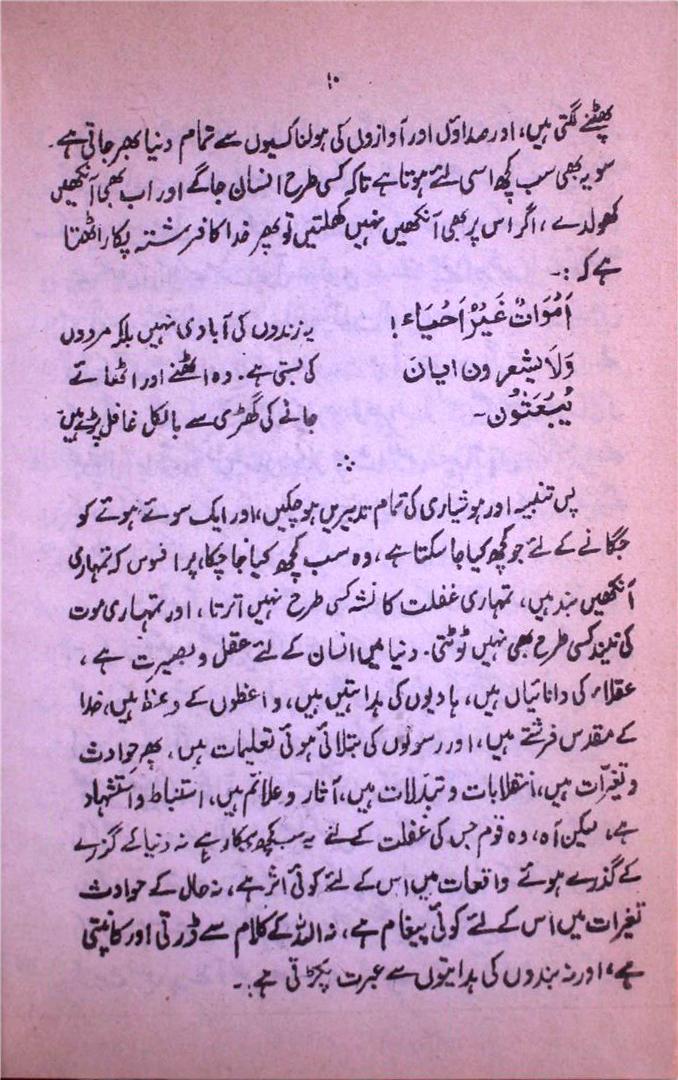 ۱۰
پھٹنے لگتی ہیں، اور صداؤں اور آوازوں کی ہولناکیوں سے تمام دنیا بھر جاتی ہے۔
سو یہ بھی سب کچھ اسی لئے ہوتا ہے تاکہ کسی طرح انسان جاگے اور اب بھی آنکھیں
کھولدے، اگر اس پر بھی آنکھیں نہیں کھلتیں تو پھر خدا کا فرشتہ پکار اٹھتا
ہے کہ :۔
اَمْوَاتٌ غَيْرُ اَحْيَاء !
وَلَا يشعرون ايان
يُبْعَثُوْن۔
یہ زندوں کی آبادی نہیں بلکہ مردوں
کی بستی ہے۔ وہ اٹھنے اور اٹھائے
جانے کی گھڑی سے بالکل غافل پڑے ہیں
پس تنبیہ اور ہوشیاری کی تمام تدبیریں ہو چکیں، اور ایک سوئے ہوئے کو
جگانے کے لئے جو کچھ کیا جا سکتا ہے، وہ سب کچھ کیا جا چکا، پر افسوس کہ تمہاری
آنکھیں بند ہیں، تمہاری غفلت کا نشہ کسی طرح نہیں اترتا، اور تمہاری موت
کی نیند کسی طرح بھی نہیں ٹوٹتی۔ دنیا میں انسان کے لئے عقل و بصیرت ہے،
عقلاء کی دانائیاں ہیں، ہادیوں کی ہدایتیں ہیں، واعظوں کے وعظ ہیں، خدا
کے مقدس فرشتے ہیں، اور رسولوں کی بتلائی ہوئی تعلیمات ہیں۔ پھر حوادث
و تغیرّات ہیں، انقلابات و تبدّلات ہیں، آثار و علائم ہیں، استنباط و استشہاد
ہے، لیکن آہ، وہ قوم جس کی غفلت کے لئے یہ سب کچھ بیکار ہے نہ دنیا کے گزرے
کے گذرے ہوئے واقعات میں اس کے لئے کوئی اثر ہے، نہ حال کے حوادث
تغیرات میں اس کے لئے کوئی پیغام ہے، نہ اللہ کے کلام سے ڈرتی اور کانپتی
ہے، اور نہ بندوں کی ہدایتوں سے عبرت پکڑتی ہے۔